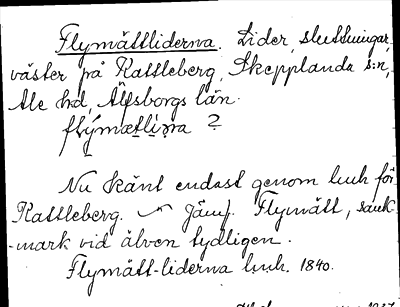 Flymåttliderna. Lider, sluttningar,
väster på Kattleberg, Skepplanda s:n,
Ale hd, Älfsborgs län.
flýmætliṇa ?
Nu känt endast genom luh för
Kattleberg. Jämf. Flymått, sank-
-mark vid älven tydligen.
Flymått-liderna luh. 1840.